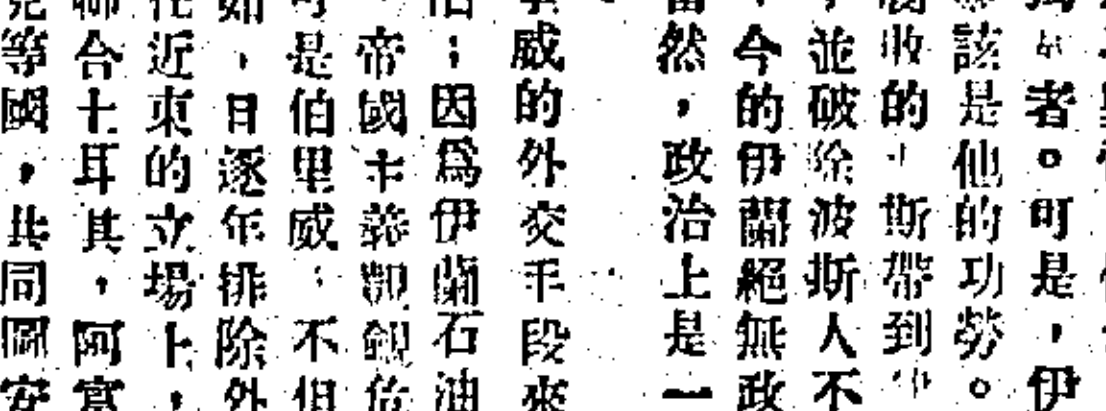 者。可是,伊
該是他的功勞。
收的 斯帶到
並破除波斯人不
今的伊蘭絕無政
然,政治上是一
威的外交手段來
;因爲伊蘭石油
帝國主義覬覦
是伯里威 不但
如,日逐年排除外
近東的立場上,
聯合土耳其,阿富
等國,共同圖安